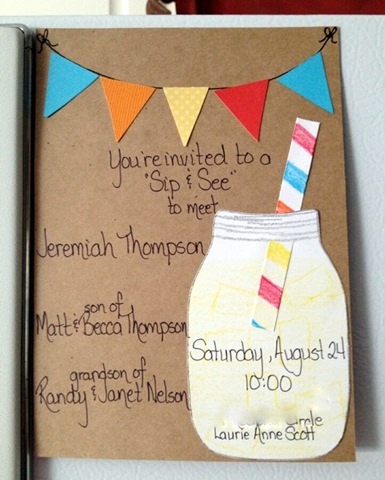 You're invited to a
"Sip & See"
to meet
Jeremiah Thompson
son of
Matt & Becca Thompson
grandson of
Randy & Janet Nelson
Saturday, August 24
10:00
Laurie Anne Scott